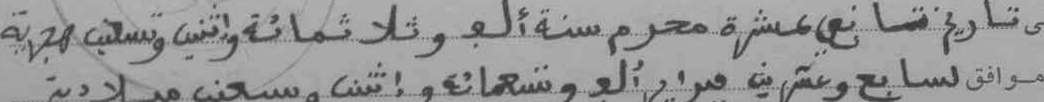 ى تاريخ عشرة محرم سنة ألف وثلاثمائة واثنين وتسعين هجرية
موافق لسابع وعشرين فبراير ألف وتسعمائة وإثنين وسبعين ميلادية